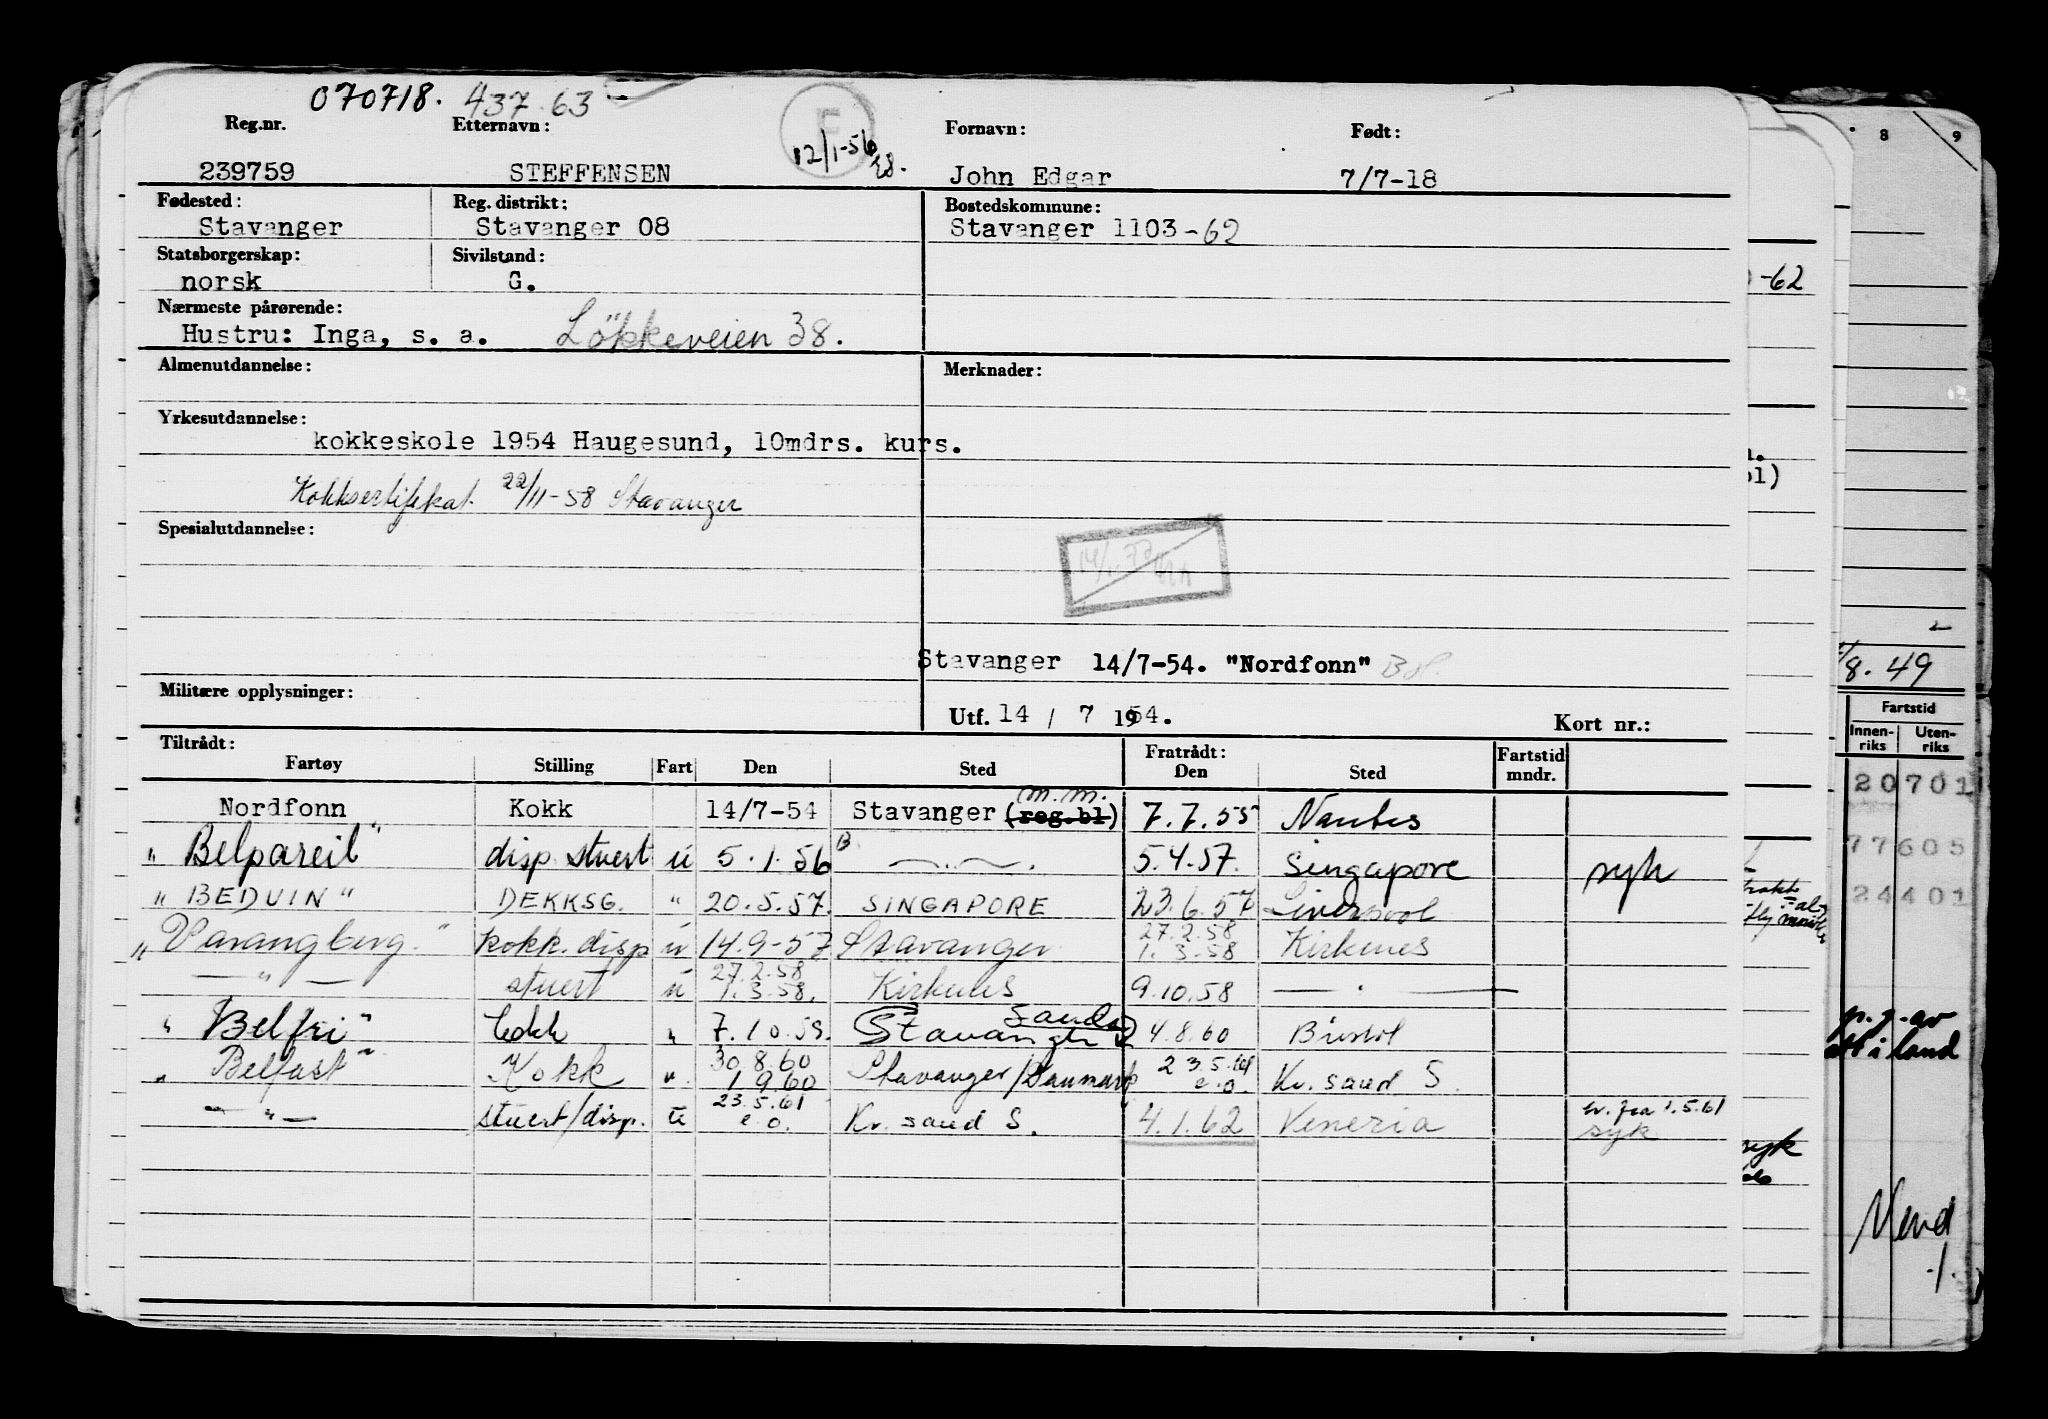 070718. 437.63
Reg.nr. Etternavn: Fornavn: Født:
12/1-56
239759 STEFFENSEN John Edgar 7/7-18
Fødested: Reg. distrikt: Bostedskommune:
Stavanger Stavanger 08 Stavanger 1103-62
Statsborgerskap: Sivilstand:
norsk G.
Nærmeste pårørende:
Hustru: Inga, s. a. Lökkeveien 38.
Almenutdannelse: Merknader:
Yrkesutdannelse:
kokkeskole 1954 Haugesund, 10mdrs. kurs.
Kokksertifikat 22/11-58 Stavanger
Spesialutdannelse:
Stavanger 14/7-54. "Nordfonn"
Militære opplysninger:
Utf. 14 / 7 1954. Kort nr.:
Tiltrådt: Fratrådt:
Fartøy Stilling Fart Den Sted Den Sted Fartstid mndr.
Nordfonn Kokk 14/7-54 Stavanger (reg.bl) m.m. 7.7.55 Nantes
" Belpareil" disp. stuert u 5.1.56 B. —„—. 5.4.57. Singapore syk
" BEDUIN " DEKKSG. " 20.5.57. SINGAPORE 23.6.57 Liverpool
" Varangberg. " kokk. disp u 14.9-57 Stavanger 27.2.58 1.3.58 Kirkenes
— " — stuert u 27.2.58 1.3.58. Kirkenes 9.10.58 — " —
" Belfri " kokk " 7.10.59. Stavanger 4.8.60 Bristol
" Belfast " Kokk " 30.8.60 1.9.60 Stavanger/Danmark 23.5.61 e.o. Kr. sand S.
— " — stuert/disp. u 23.5.61 e.o. Kr. sand S. 4.1.62 Venezia lv. fra 1.5.61 syk
8 9
-62
8.49
Fartstid
Innen-riks Uten-riks
20701
77605
24401
p.g.av
att i land
syk